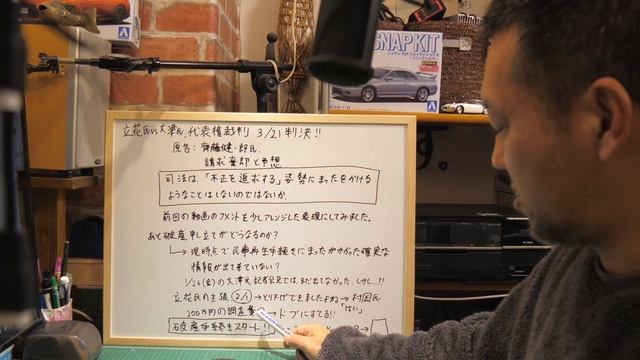 SNAP KIT
立花氏vs大津氏、代表権裁判 3/21判決!!
原告:齊藤健一郎氏
請求棄却と予想
司法は、「不正を追求する」姿勢にまったをかける
ようなことはしないのではないか。
前回の動画のコメントを少しアレンジした表現にしてみました。
あと破産申し立てがどうなるのか?
現時点で民事再生手続きにまったがかかった確実な
情報が出て来ていない?
1/26(金)の大津氏記者会見では、まだ出てなかった、しかし…?!
立花氏の主張 2/1→とり下げできましたよね→村岡氏
「はい」
200万円の調査 →ドブにすてる!!
破産手続きスタート!!